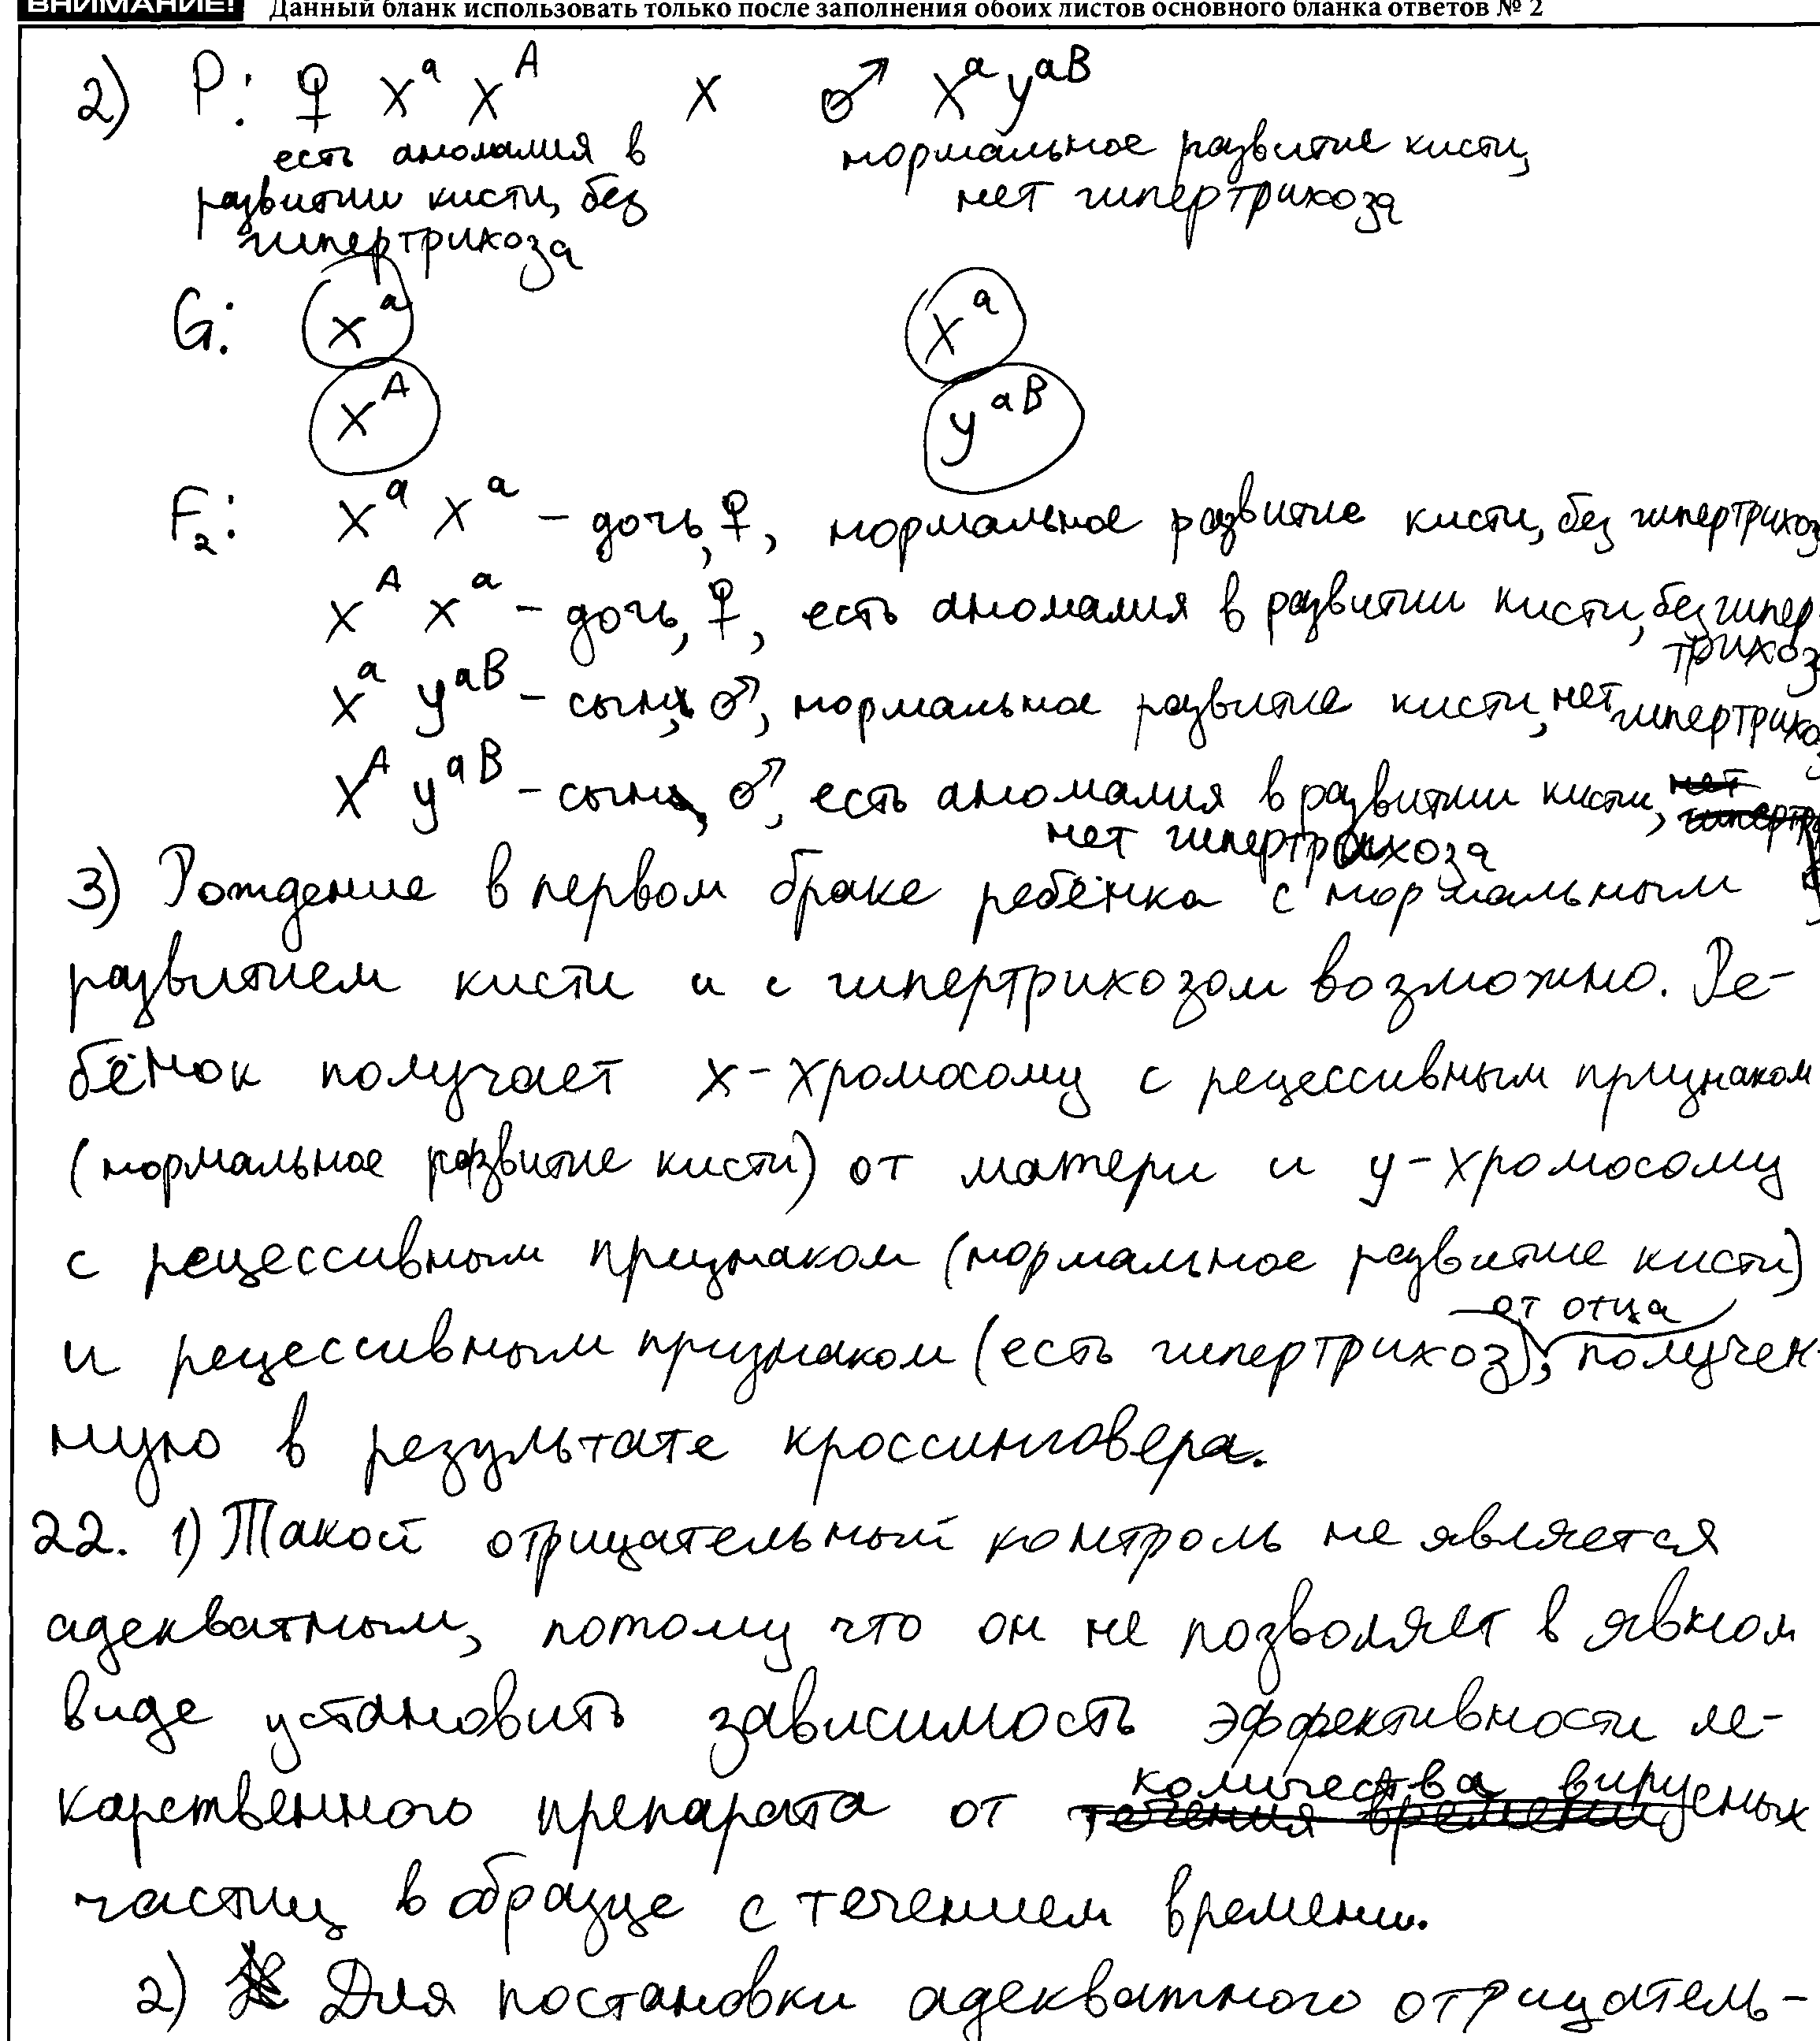 ВНИМАНИЕ! Данный бланк использовать только после заполнения обоих листов основного бланка ответов № 2
2) P: ♀ X^a X^A x ♂ X^a y^aB
есть аномалия в развитии кисти, без гипертрихоза
нормальное развитие кисти, нет гипертрихоза
G: X^a X^a
X^A y^aB
F₂: X^a X^a – дочь, ♀, нормальное развитие кисти, без гипертрихоз
X^A X^a – дочь, ♀, есть аномалия в развитии кисти, без гипер-
трихоз
X^a y^aB – сын, ♂, нормальное развитие кисти, нет гипертрихо
X^A y^aB – сын, ♂, есть аномалия в развитии кисти,
нет гипертрихоза
3) Рождение в первом браке ребёнка с нормальным
развитием кисти и с гипертрихозом возможно. Ре-
бёнок получает x-хромосому с рецессивным признаком
(нормальное развитие кисти) от матери и y-хромосому
с рецессивным признаком (нормальное развитие кисти)
и рецессивным признаком (есть гипертрихоз) от отца, получен-
ную в результате кроссинговера.
22. 1) Такой отрицательный контроль не является
адекватным, потому что он не позволяет в явном
виде установить зависимость эффективности ле-
карственного препарата от количества вирусных
частиц в образце с течением времени.
2) Для постановки адекватного отрицатель-